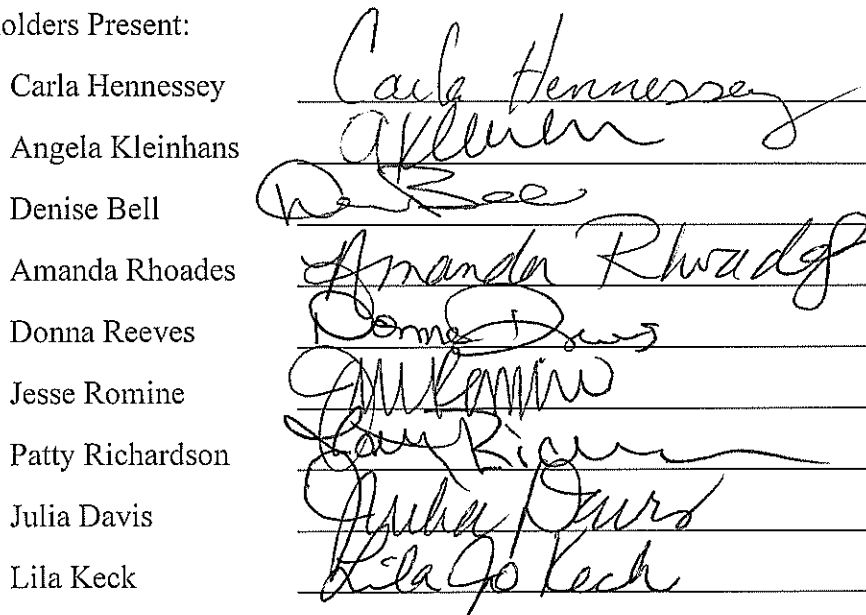 olders Present:
Carla Hennessey Carla Hennessey
Angela Kleinhans
Denise Bell
Amanda Rhoades Amanda Rhoades
Donna Reeves Donna
Jesse Romine
Patty Richardson
Julia Davis Julia Davis
Lila Keck Lila Jo Keck